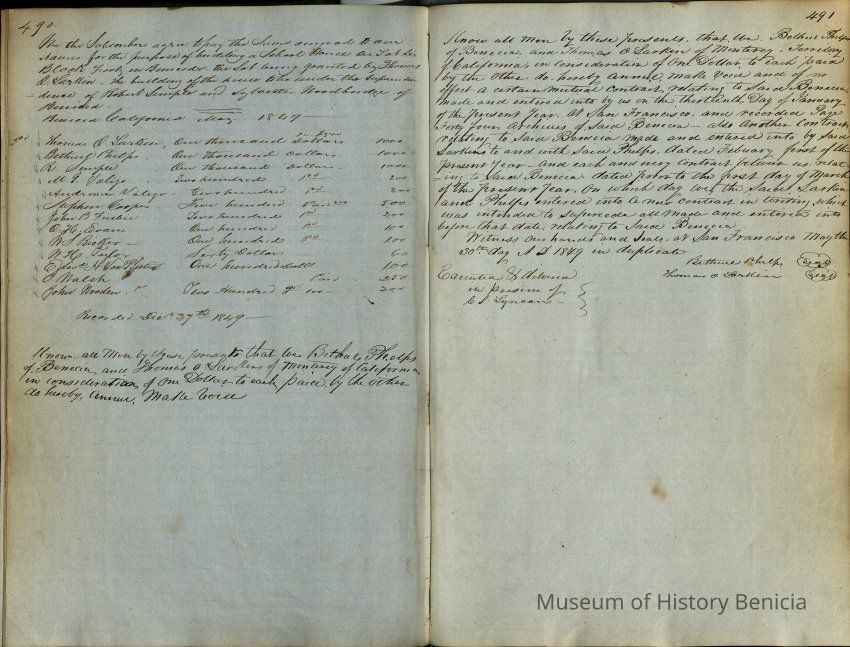 490.
We the Subscribers agree to pay the Sums annexed to our
names for the purpose of building a School House on Lot Six
Block Four, in Benicia, the Lot being granted by Thomas
O. Larkin. The building of the house to be under the Superinten
dence of Robert Semple and Sylvester Woodbridge of
Benicia.
Benicia California May 1849
Thomas O. Larkin, One thousand Dollars 1000
Bethuel Phelps, One thousand Dollars 1000
R. Semple One thousand Dollars 1000
M. G. Valejo Two hundred 200
Andronico Valejo Two hundred 200
Stephen Cooper Five hundred 500
John B Frisbie Two hundred 200
O. H. Evans One hundred 100
One hundred 100
W. H. Taylor Sixty Dollars 60
One hundred Dolls 100
Walsh 250
John Two Hundred 200
Recorded Dec. 27th 1849
Know all Men by these presents that We Bethuel Phelps
of Benicia and Thomas O Larkin of Monterey of California
in consideration of One Dollar to each paid by the other
do hereby, annul, Make Void
491
Know all men by these presents, that We, Bethuel Phelps
of Benicia, and Thomas O Larkin of Monterey, Territory
of California, in consideration of One Dollar to each paid
by the other do hereby Annul, make Void and of no
effect a certain mutual Contract, relating to Said Benicia
made and entered into by us on the thirteenth Day of January
of the present Year, At San Francisco, and recorded Page
Forty four, Archives of Said Benicia also Another Contract
relating to Said Benicia made and entered into by Said
Larkin to and with Said Phelps, dated February first of the
present Year and each and every Contract between us relat
ing to Said Benicia dated prior to the first day of March
of the present Year, On which day We the Said Larkin
and Phelps entered into a new contract in writing, which
was intended to Supercede all made and entered into
before that date relating to Said Benicia.
Witness our hands and Seals, at San Francisco May the
30th day A D 1849 in duplicate
Bethuel Phelps Seal
Thomas O Larkin Seal
Executed &
in presence of
C. L.
Museum of History Benicia